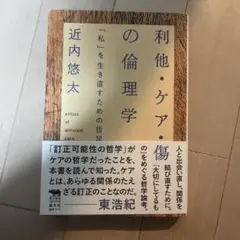 利他・ケア・傷
の倫理学
「私」を生き直すための哲学
近内悠太
人と出会い直し、関係を
結び直すために。
「大切にしてるもの」
をめぐる哲学論考。
「訂正可能性の哲学」が
ケアの哲学だったことを、
本書を読んで知った。ケア
とは、あらゆる関係のたえ
ざる訂正のことなのだ。
東浩紀